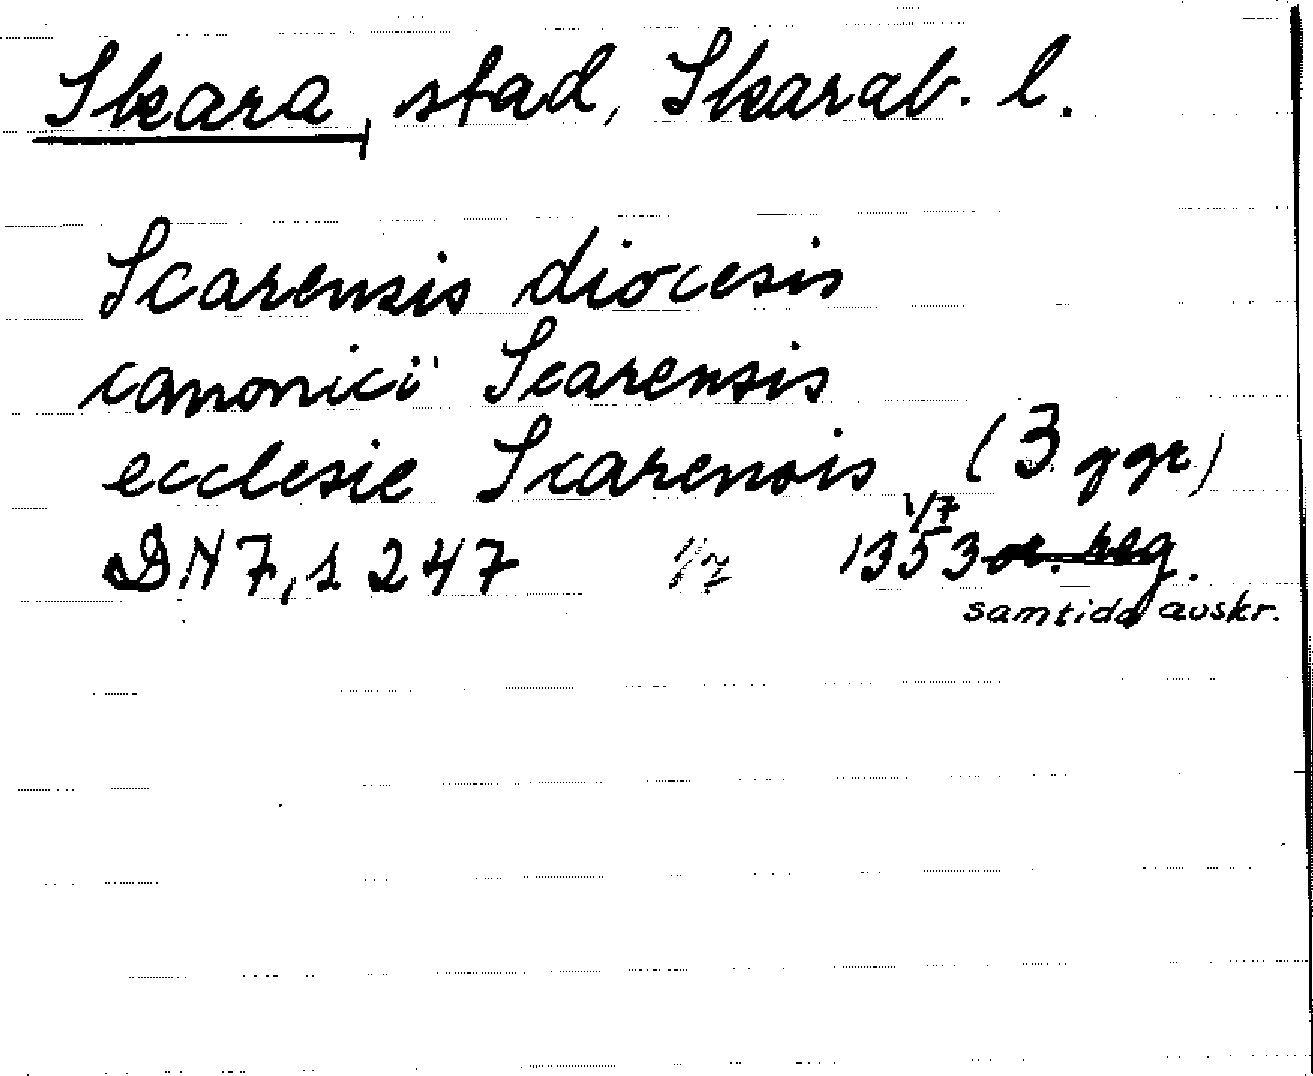 Skara, stad, Skarab. l.
Scarensis diocesis
canonici Scarensis
ecclesie Scarensis (3 ggr)
DN 7, s 247 1/7 1353 1/7 or. reg.
samtida avskr.